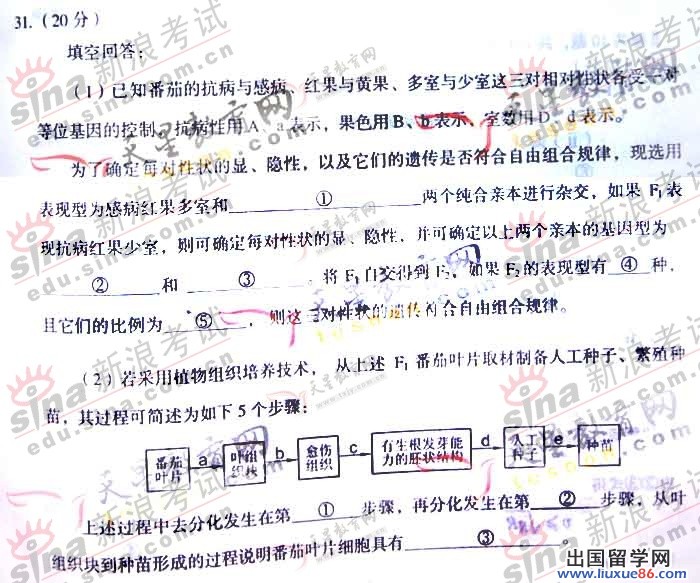 31.（20分）
填空回答：
（1）已知番茄的抗病与感病、红果与黄果、多室与少室这三对相对性状各受一对
等位基因的控制，抗病性用A、a表示，果色用B、b表示、室数用D、d表示。
为了确定每对性状的显、隐性，以及它们的遗传是否符合自由组合规律，现选用
表现型为感病红果多室和 ① 两个纯合亲本进行杂交，如果F₁表
现抗病红果少室，则可确定每对性状的显、隐性，并可确定以上两个亲本的基因型为
② 和 ③ 。将F₁自交得到F₂，如果F₂的表现型有 ④ 种，
且它们的比例为 ⑤ ，则这三对性状的遗传符合自由组合规律。
（2）若采用植物组织培养技术，从上述F₁番茄叶片取材制备人工种子、繁殖种
苗，其过程可简述为如下5个步骤：
番茄叶片 a 叶组织块 b 愈伤组织 c 有生根发芽能力的胚状结构 d 人工种子 e 种苗
上述过程中去分化发生在第 ① 步骤，再分化发生在第 ② 步骤，从叶
组织块到种苗形成的过程说明番茄叶片细胞具有 ③ 。
sina新浪考试
edu.sina.com.cn
天星教育网
出国留学网
www.liuxue86.com